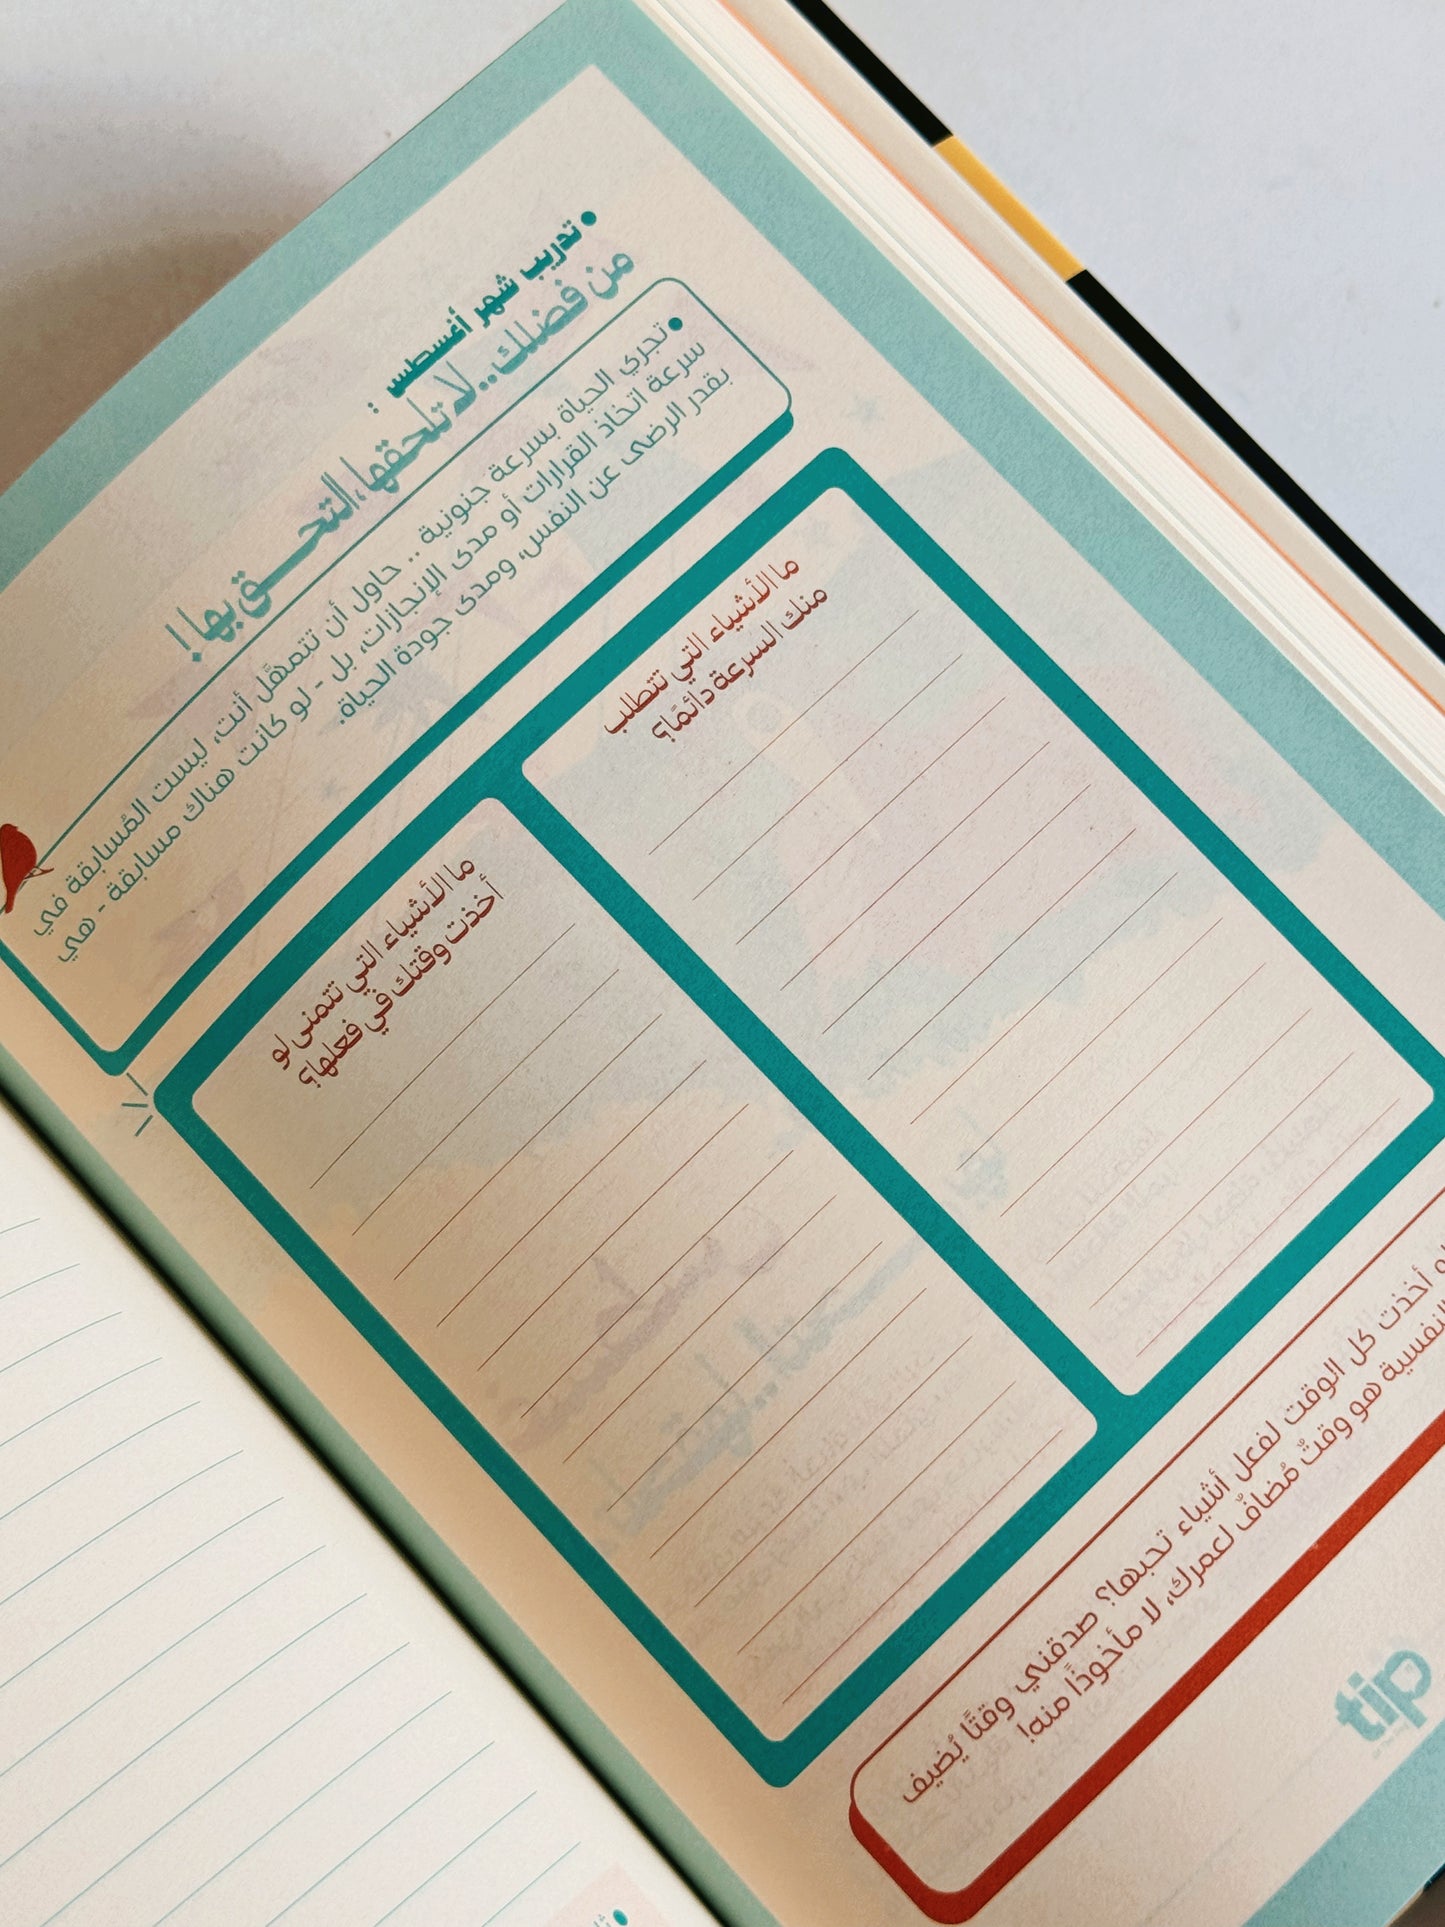 تدريب شهر أغسطس :
من فضلك.. لا تلحقها، التحق بها!
تجري الحياة بسرعة جنونية .. حاول أن تتمهَّل أنت، ليست المُسابقة في
سرعة اتخاذ القرارات أو مدى الإنجازات، بل - لو كانت هناك مسابقة - هي
بقدر الرضى عن النفس، ومدى جودة الحياة.
ما الأشياء التي تتطلب
منك السرعة دائمًا؟
ما الأشياء التي تتمنى لو
أخذت وقتك في فعلها؟
أخذت كل الوقت لفعل أشياء تحبها؟ صدقني وقتًا يُضيف
هو وقتٌ مُضافٌ لعمرك، لا مأخوذًا منه!
tip